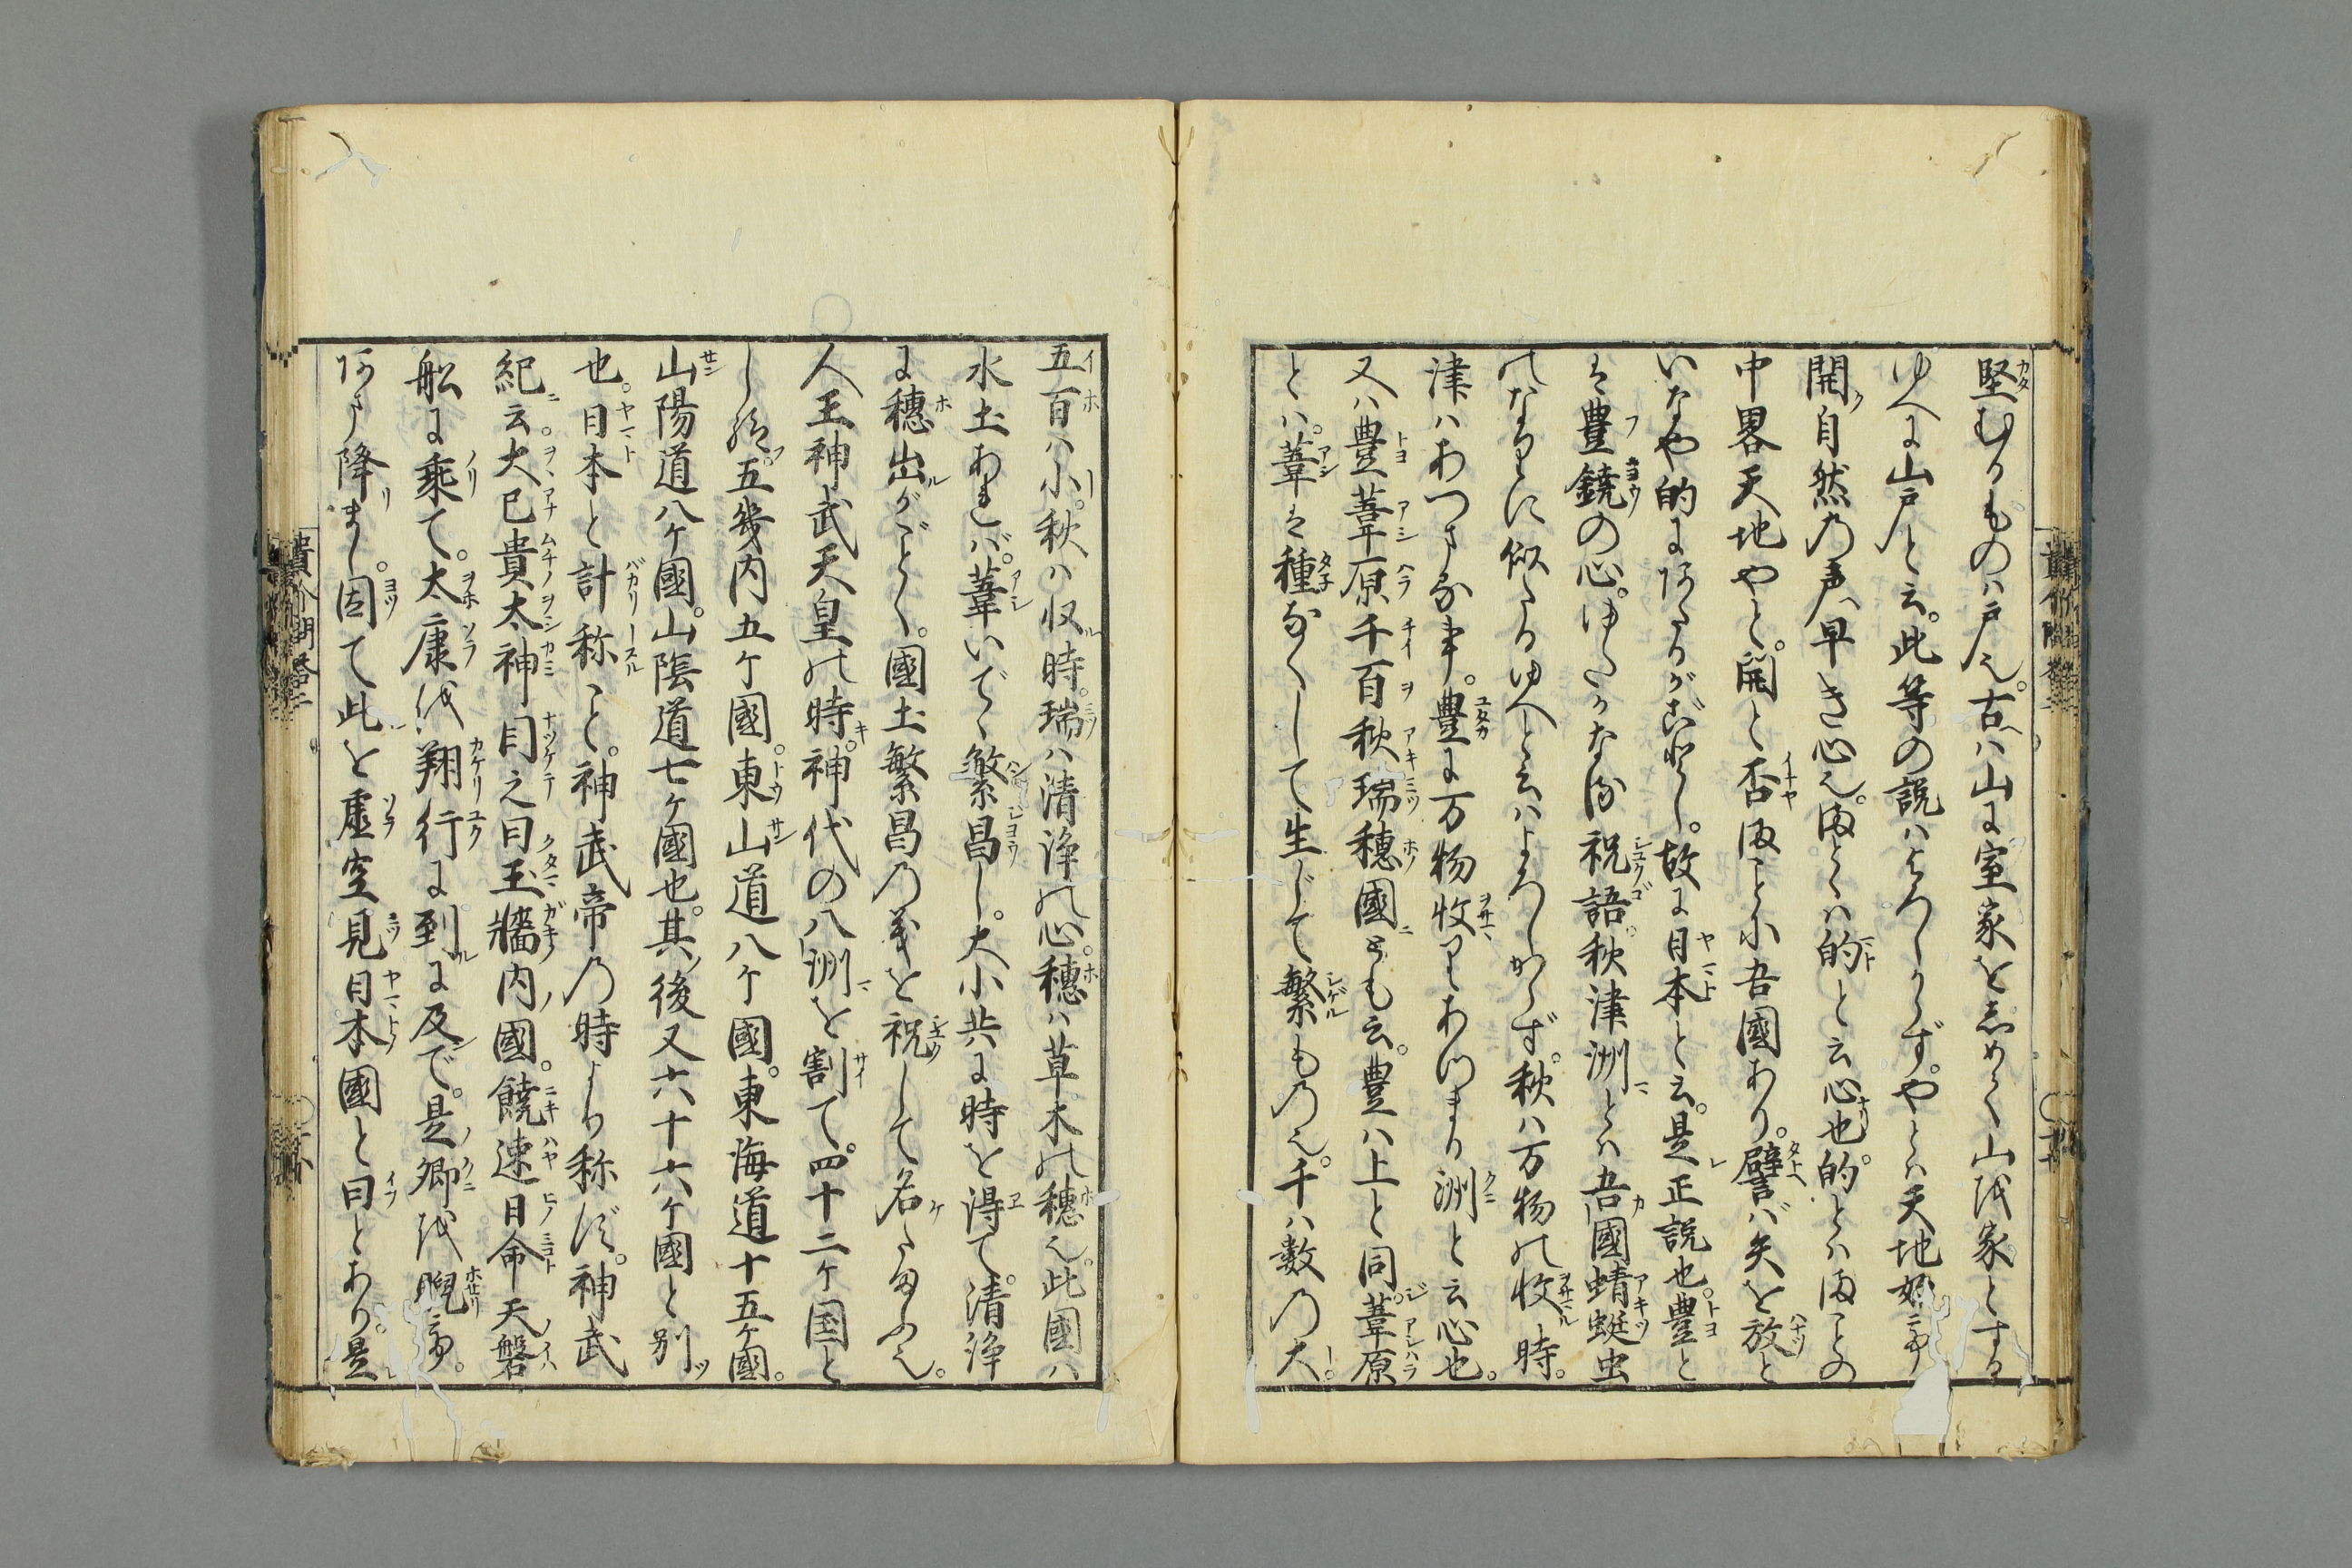 堅むるものハ戸也。古ハ山に室家をしめて山を家とする
ゆへに山戸と云。此等の説ハよろしからず。やとハ天地
開自然の声、早き心也。まとハ的と云心也。的とハまことの
中畧天地やと開と否まこと小吾國あり。譬バ矢を放と
いなや的にあたるがごとし。故に日本と云。是正説也。豊と
は豊饒の心。ゆたかなる祝語。秋津洲とハ吾國蜻蜓虫
のなりに似たるゆへと云ハよろしからず。秋ハ万物の收時。
津ハあつまる事。豊に万物收りあつまり洲と云心也。
又ハ豊葦原千百秋瑞穗國とも云。豊ハ上と同。葦原
とハ。葦は種なくして生じて繁もの也。千ハ數の大。
五百ハ小。秋ハ収時。瑞ハ清浄の心。穗ハ草木の穗也。此國ハ
水土あれバ。葦いでゝ繁昌し。大小共に時を得て。清浄
に穗出がごとく。國土繁昌の義を祝して名たまふ也。
人王神武天皇の時。神代の八洲を割て。四十二ケ国と
し給。五畿内五ケ國。東山道八ケ國。東海道十五ケ國。
山陽道八ケ國。山陰道七ケ國也。其後又六十六ケ國と別
也。日本と計称こと。神武帝の時より称ず。神武
紀云。大己貴太神目之曰玉牆内國。饒速日命天磐
舩に乗て。太虚を翔行に到に及で。是郷を睨て。
あま降まし。因て此を虚空見日本國と曰とあり。是
貴介問答二